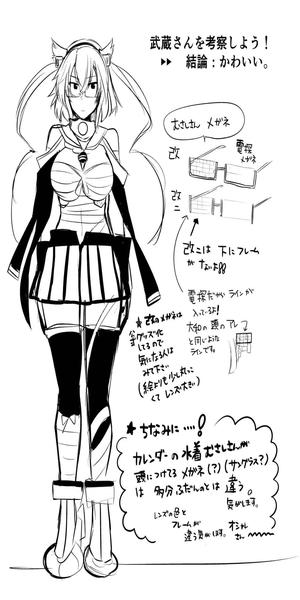 武蔵さんを考察しよう！
▶▶ 結論：かわいい。
むさしさん メガネ
改
電探
メガネ
改
二
改二は 下にフレーム
が ないよ
電探だから ラインが
入ってるよ！
大和の頭のアレ
と同じような
ラインです。
★改のメガネは
グッズ化
してるので
気になる人は
みて下さい
(絵より少し丸っこ
くて レンズ大きい)
★ちなみに…！
カレンダーの 水着 むさしさんが
頭につけてる メガネ(?)(サングラス?)
は 多分 ふだんのとは 違う。
気がします。
レンズの色と
フレームが
違う気がします。
オシャレ
さん